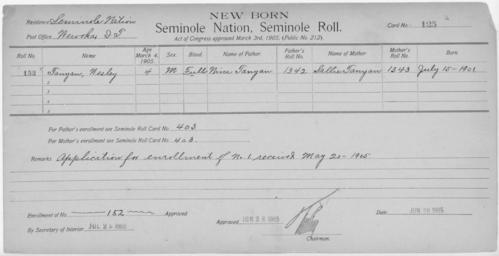 NEW BORN
Residence Seminole Nation
Seminole Nation, Seminole Roll.
Post Office Wewoka I T
Act of Congress approved March 3rd, 1905, (Public No. 212).
Card No. 125
Roll No. Name Age March 4, 1905. Sex. Blood. Name of Father. Father's Roll No. Name of Mother. Mother's Roll No. Born
152 Tanyan, Wesley 4 M Full Wince Tanyan 1342 Sallie Tanyan 1343 July 15-1901
For Father's enrollment see Seminole Roll Card No. 403
For Mother's enrollment see Seminole Roll Card No. 403.
Remarks Application for enrollment of No. 1 received May 20-1905
Enrollment of No. 152 Approved
Approved JUN 28 1905
Date: JUN 28 1905
By Secretary of Interior
Chairman.